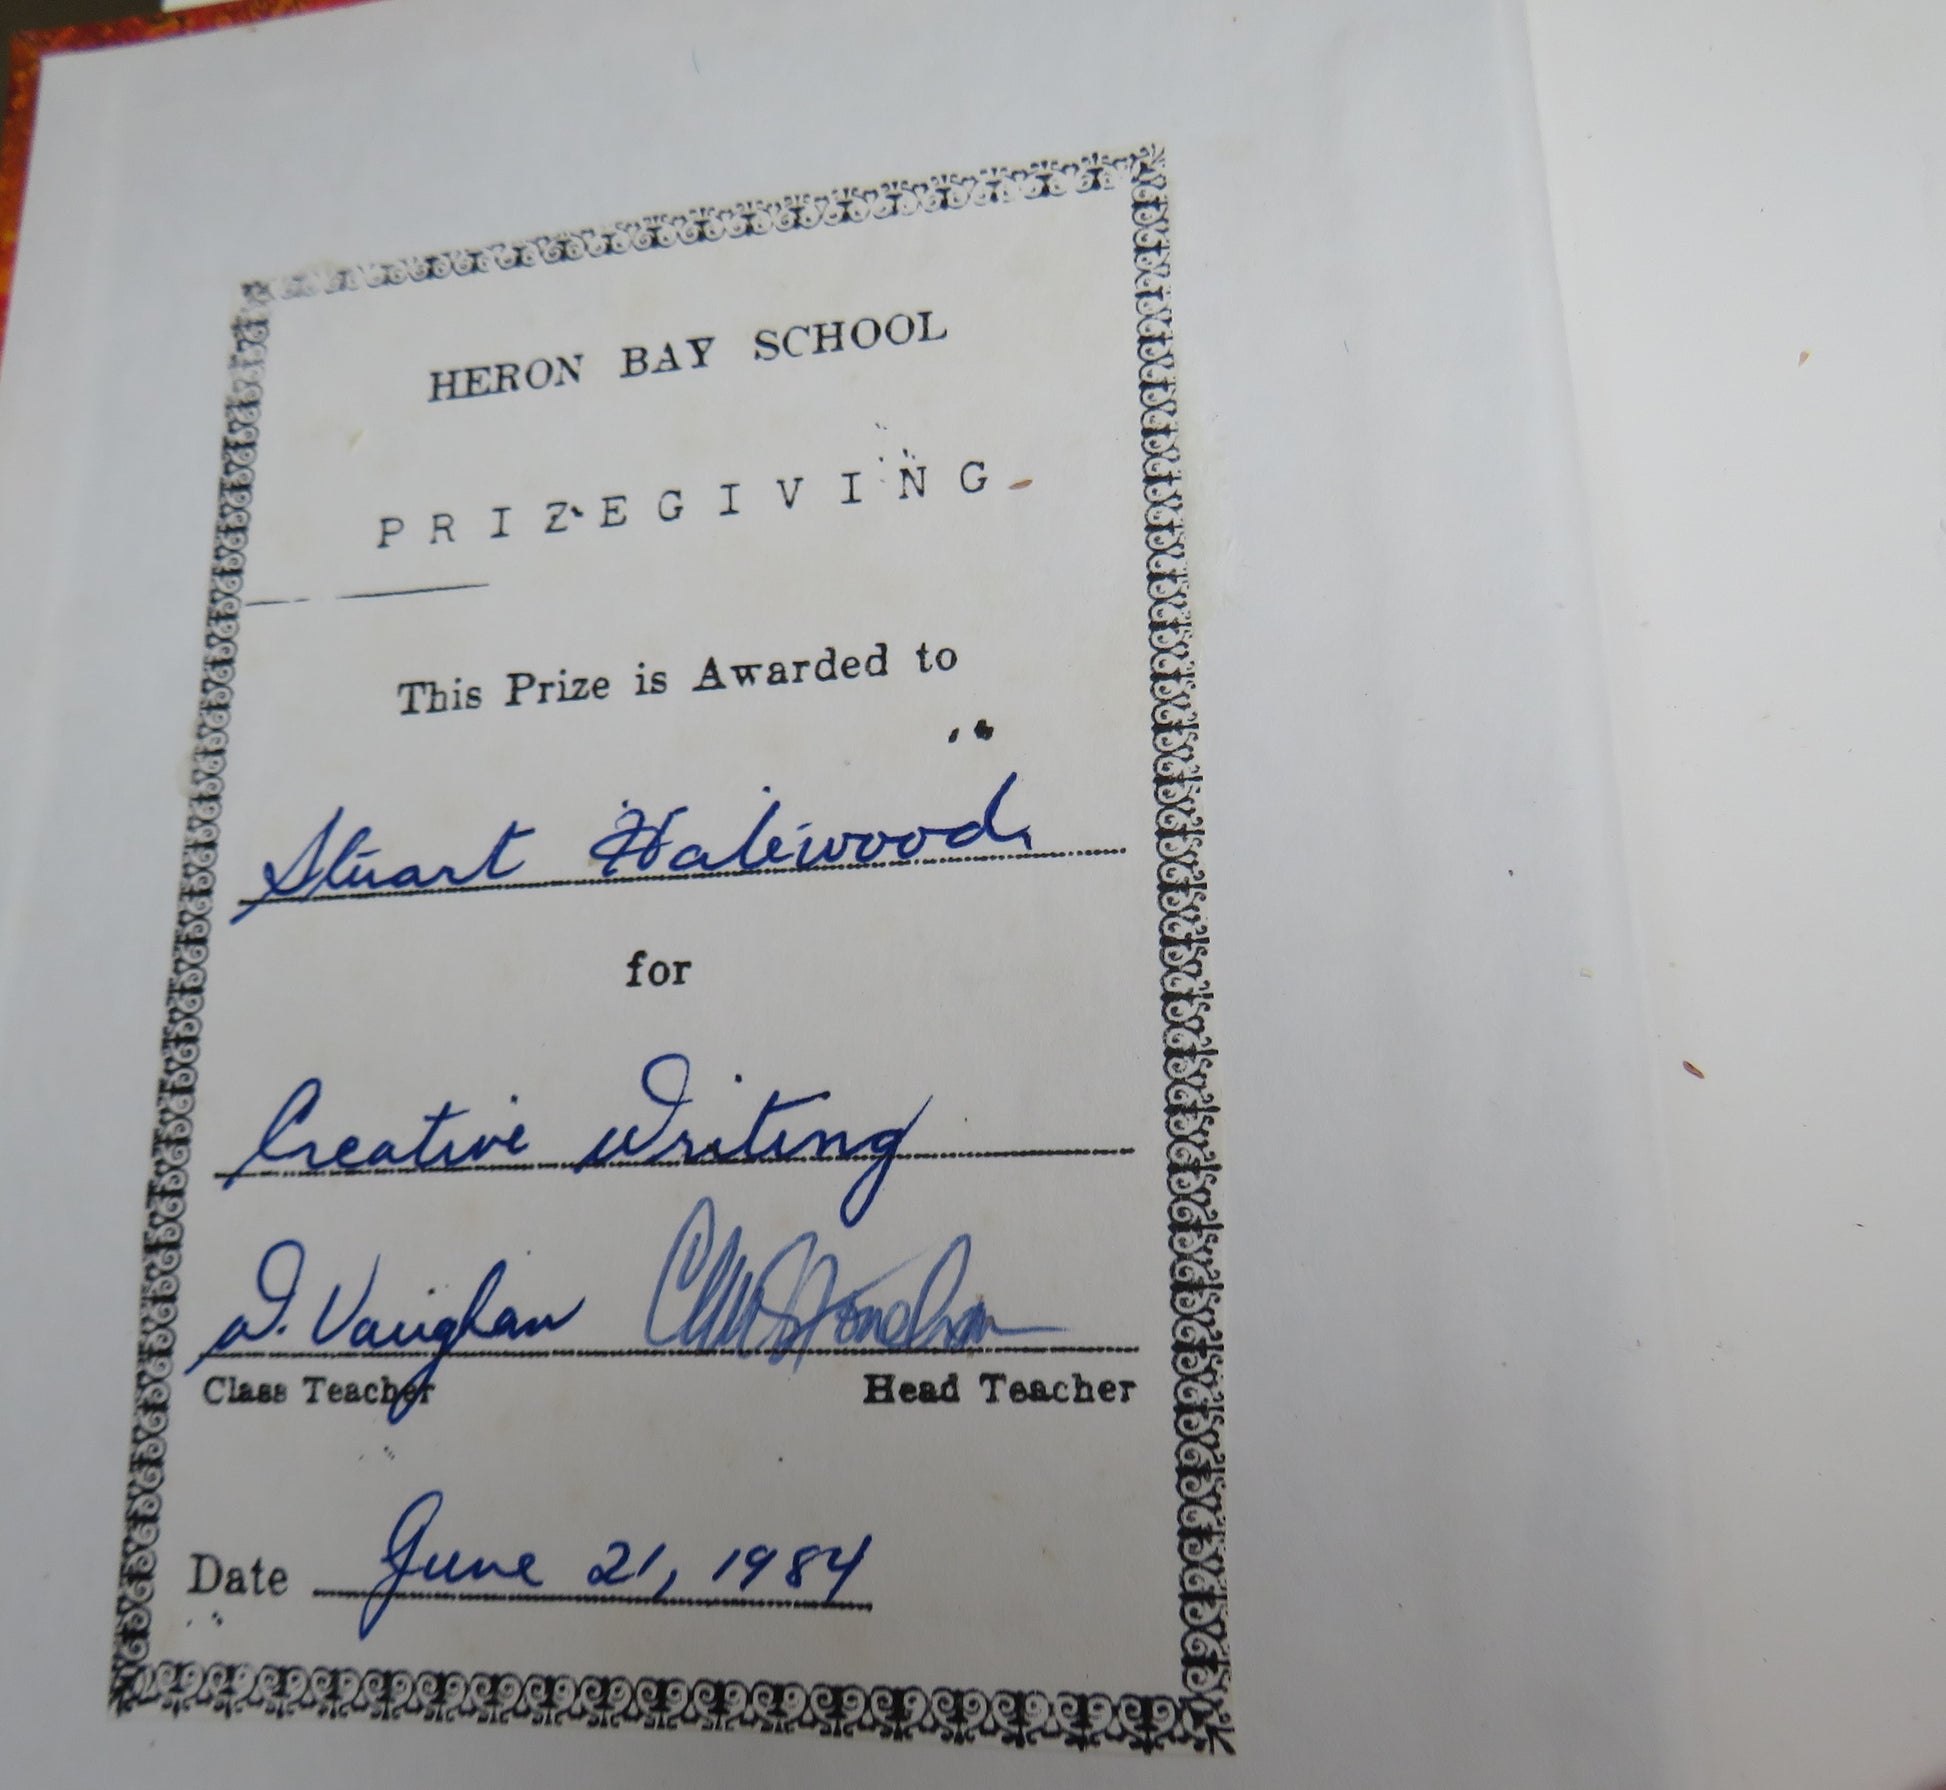 HERON BAY SCHOOL
PRIZEGIVING
This Prize is Awarded to
Stuart Halewood
for
Creative Writing
D. Vaughan
Class Teacher Head Teacher
Date June 21, 1984